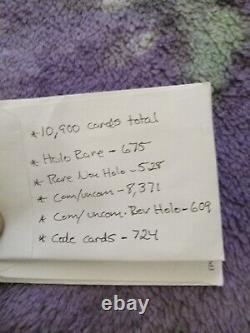 *10,900 cards total
* Holo Rare - 675
* Rare Non Holo - 528
* Com/uncom - 8,371
* Com/uncom. Rev Holo - 609
* Code cards - 724
ebay